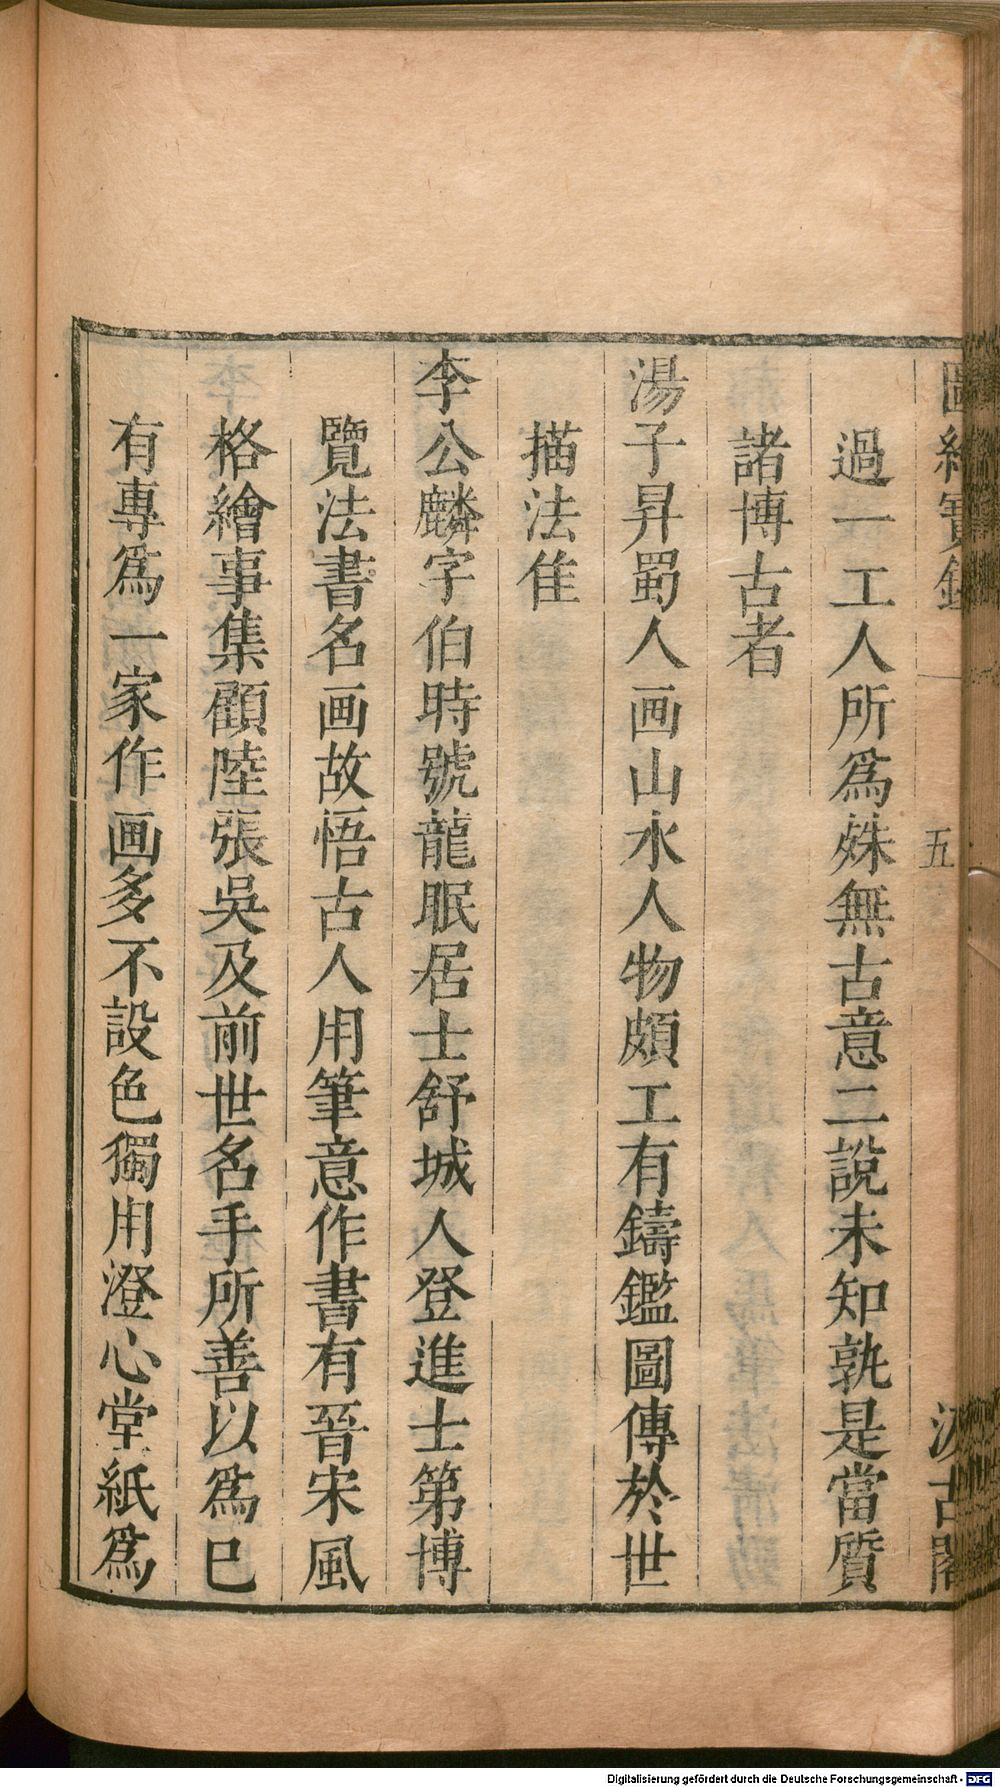 圖繪寶鑑 五 汲古閣
過一工人所爲殊無古意二說未知孰是當質
諸博古者
湯子昇蜀人画山水人物頗工有鑄鑑圖傳於世
描法佳
李公麟字伯時號龍眠居士舒城人登進士第博
覽法書名画故悟古人用筆意作書有晉宋風
格繪事集顧陸張吳及前世名手所善以爲己
有專爲一家作画多不設色獨用澄心堂紙爲
Digitalisierung gefördert durch die Deutsche Forschungsgemeinschaft - DFG